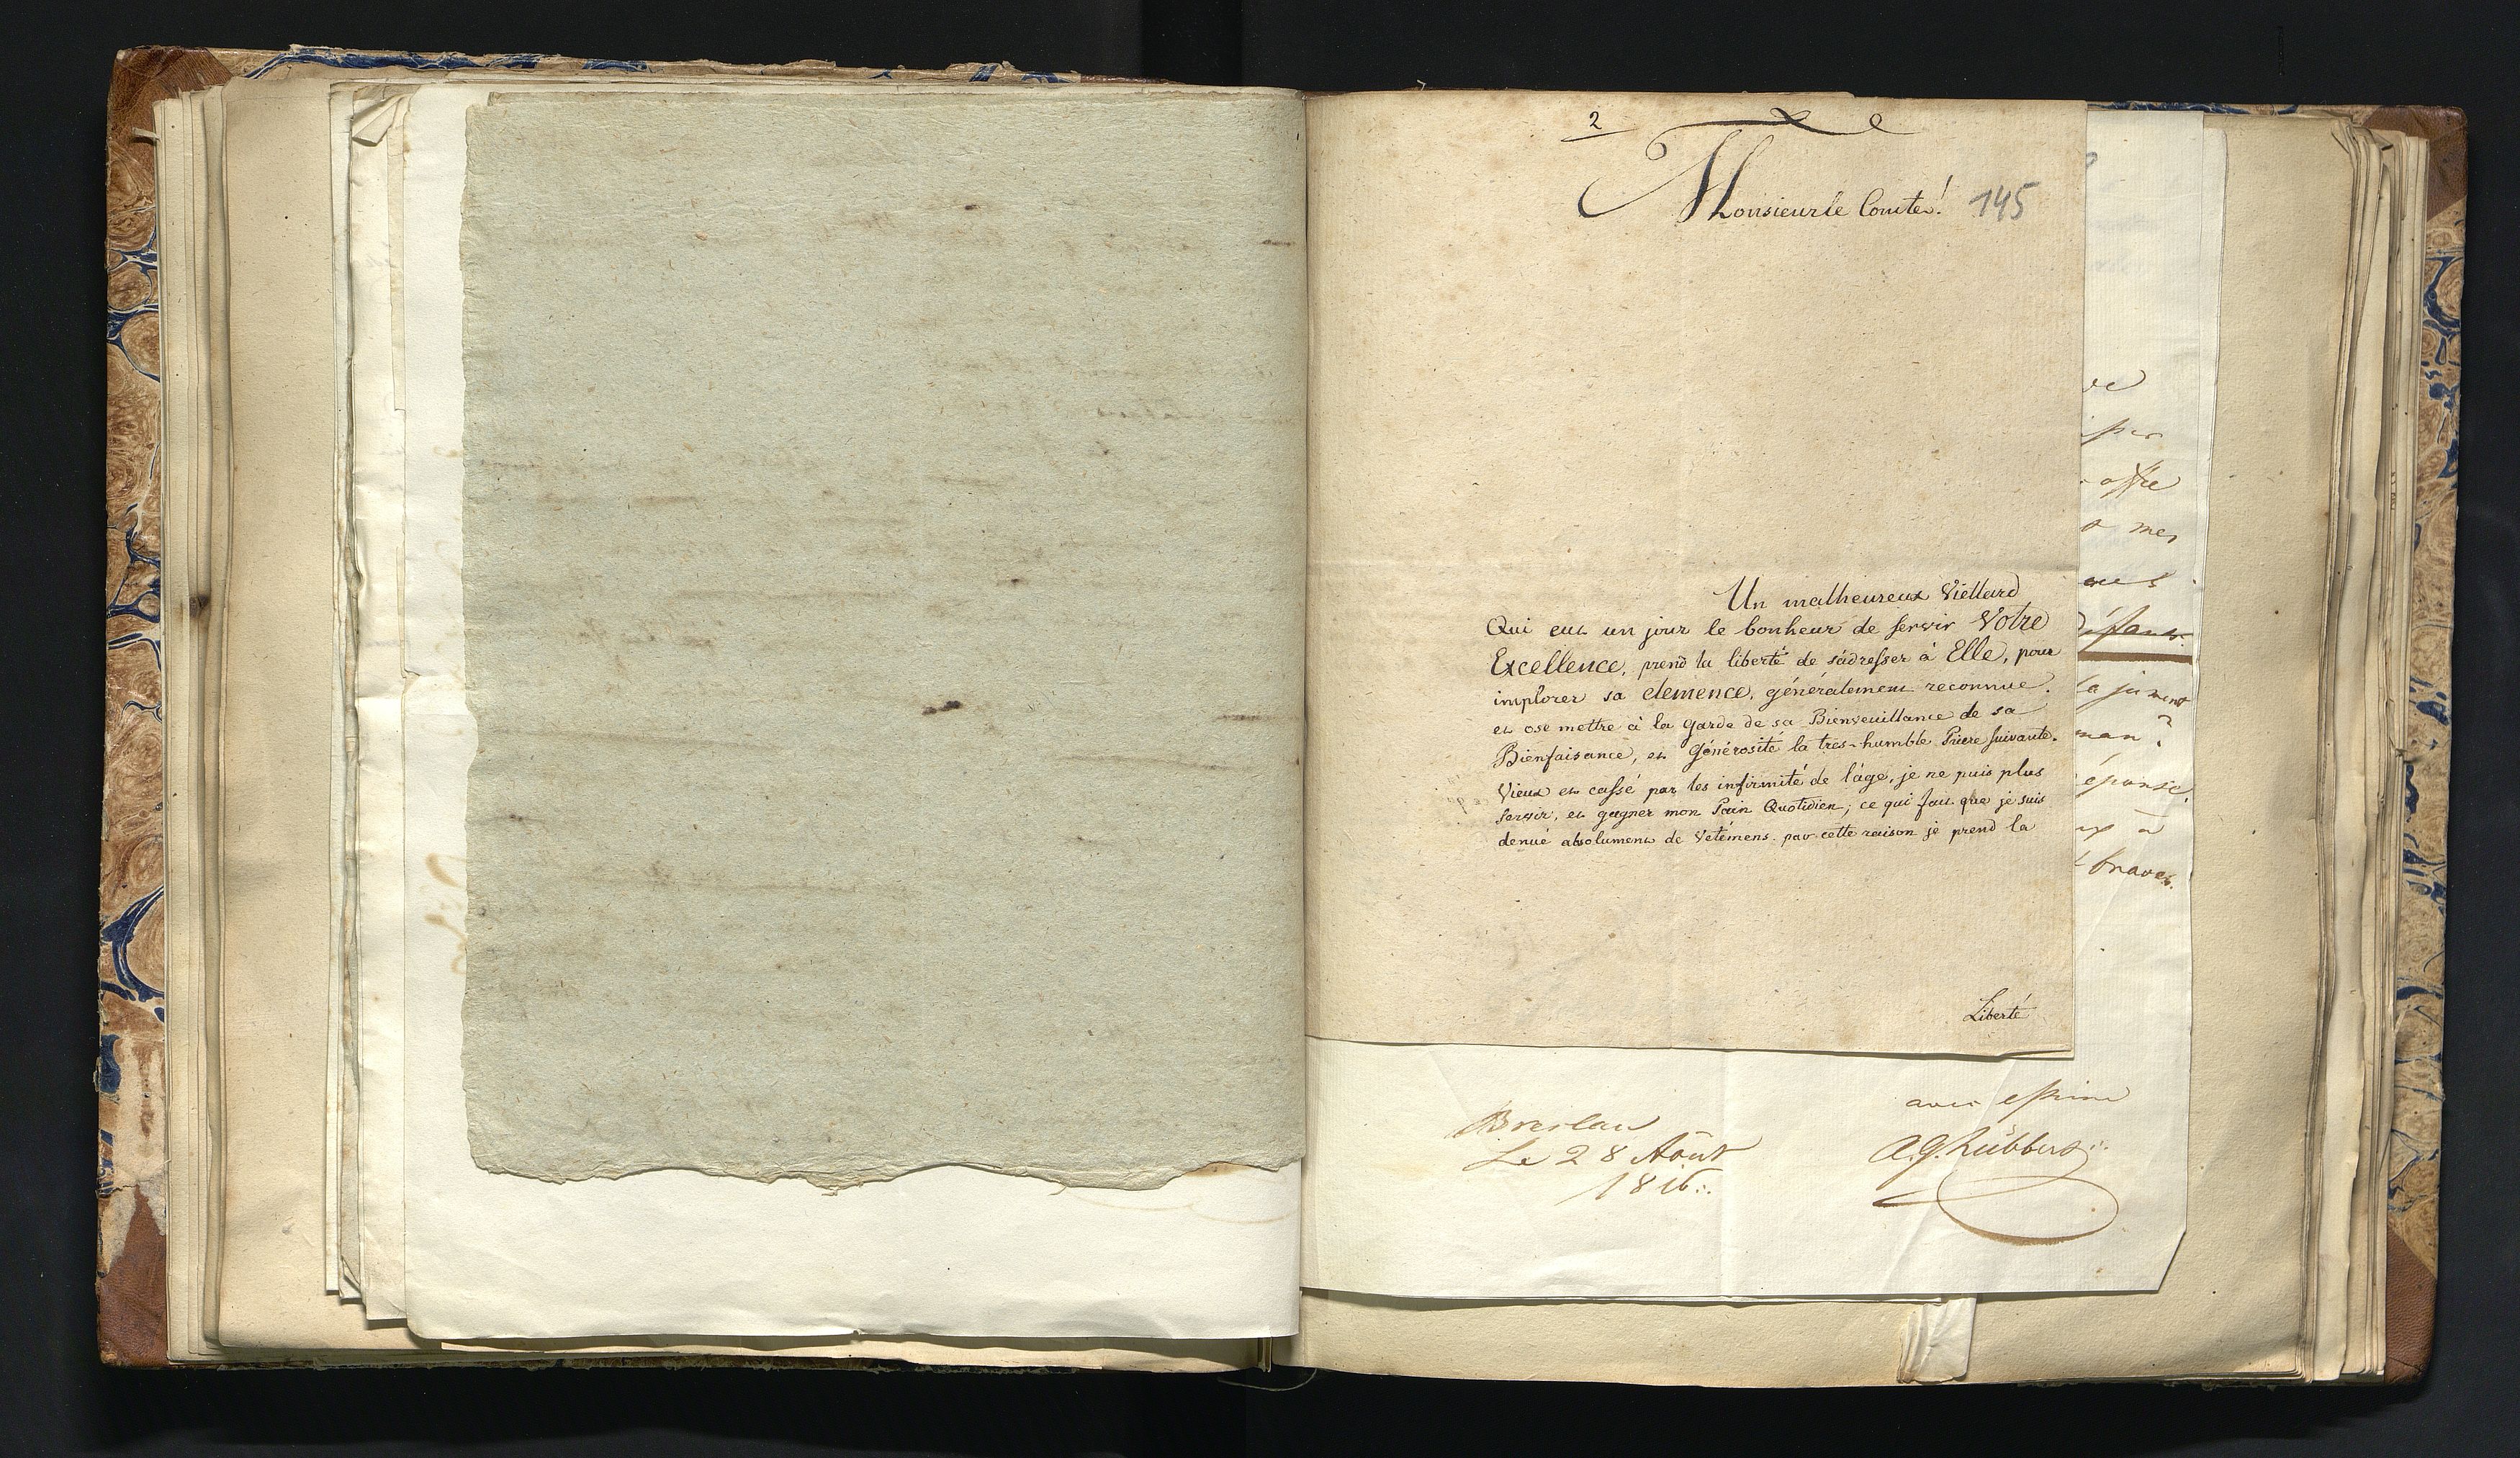 2
Monsieur le Comte!
145
Un malheureux Viellard
Qui eut un jour le bonheur de servir Votre
Excellence, prend la liberté de s'adresser à Elle, pour
implorer sa clemence, généralement reconnue.
et ose mettre à la Garde de sa Bienveuillance de sa
Bienfaisance, et Générosité la tres-humble Priere suivante.
Vieux et cassé par les infirmité de l'âge, je ne puis plus
servir, et gagner mon Pain Quotidien; ce qui fait que je suis
denué absolument de Vetémens. par cette raison je prend la
Liberté
offre
mes
la jument
man?
éponse.
à
braves.
avec estime
Breslau
Le 28 Août
1816.